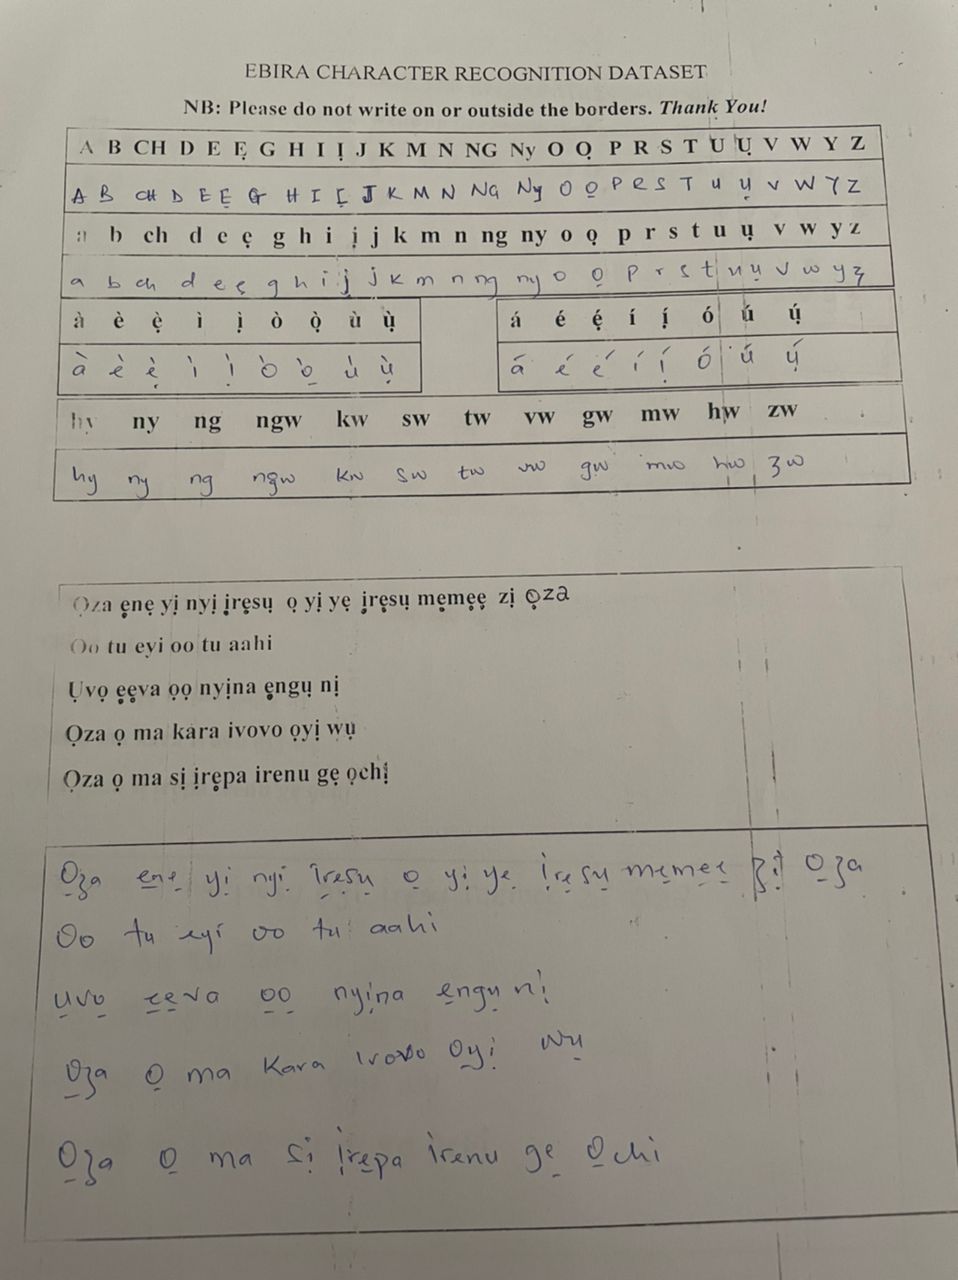 EBIRA CHARACTER RECOGNITION DATASET
NB: Please do not write on or outside the borders. Thank You!
A B CH D E Ẹ G H I Ị J K M N NG Ny O Ọ P R S T U Ụ V W Y Z
A B CH D E Ẹ G H I Ị J K M N NG Ny O Ọ P R S T U Ụ V W Y Z
a b ch d e ẹ g h i ị j k m n ng ny o ọ p r s t u ụ v w y z
a b ch d e ẹ g h i ị j k m n ng ny o ọ p r s t u ụ v w y z
à è ẹ̀ ì ị̀ ò ọ̀ ù ụ̀ á é ẹ́ í ị́ ó ú ụ́
à è ẹ̀ ì ị̀ ò ọ̀ ù ụ̀ á é ẹ́ í ị́ ó ú ụ́
hy ny ng ngw kw sw tw vw gw mw hw zw
hy ny ng ngw kw sw tw vw gw mw hw zw
Ọza ẹnẹ yị nyị ịrẹsụ ọ yị yẹ ịrẹsụ mẹmẹẹ zị ọza
Oo tu eyi oo tu aahi
Ụvọ ẹẹva ọọ nyịna ẹngụ nị
Ọza ọ ma kara ivovo ọyị wụ
Ọza ọ ma sị ịrẹpa irenu gẹ ọchị
Ọza ẹnẹ yị nyị ịrẹsụ ọ yị yẹ ịrẹsụ mẹmẹẹ zị Ọza
Oo tu eyi oo tu aahi
Ụvọ ẹẹva ọọ nyịna ẹngụ nị
Ọza Ọ ma Kara ivovo Ọyị wụ
Ọza Ọ ma sị ịrẹpa irenu gẹ Ọchi